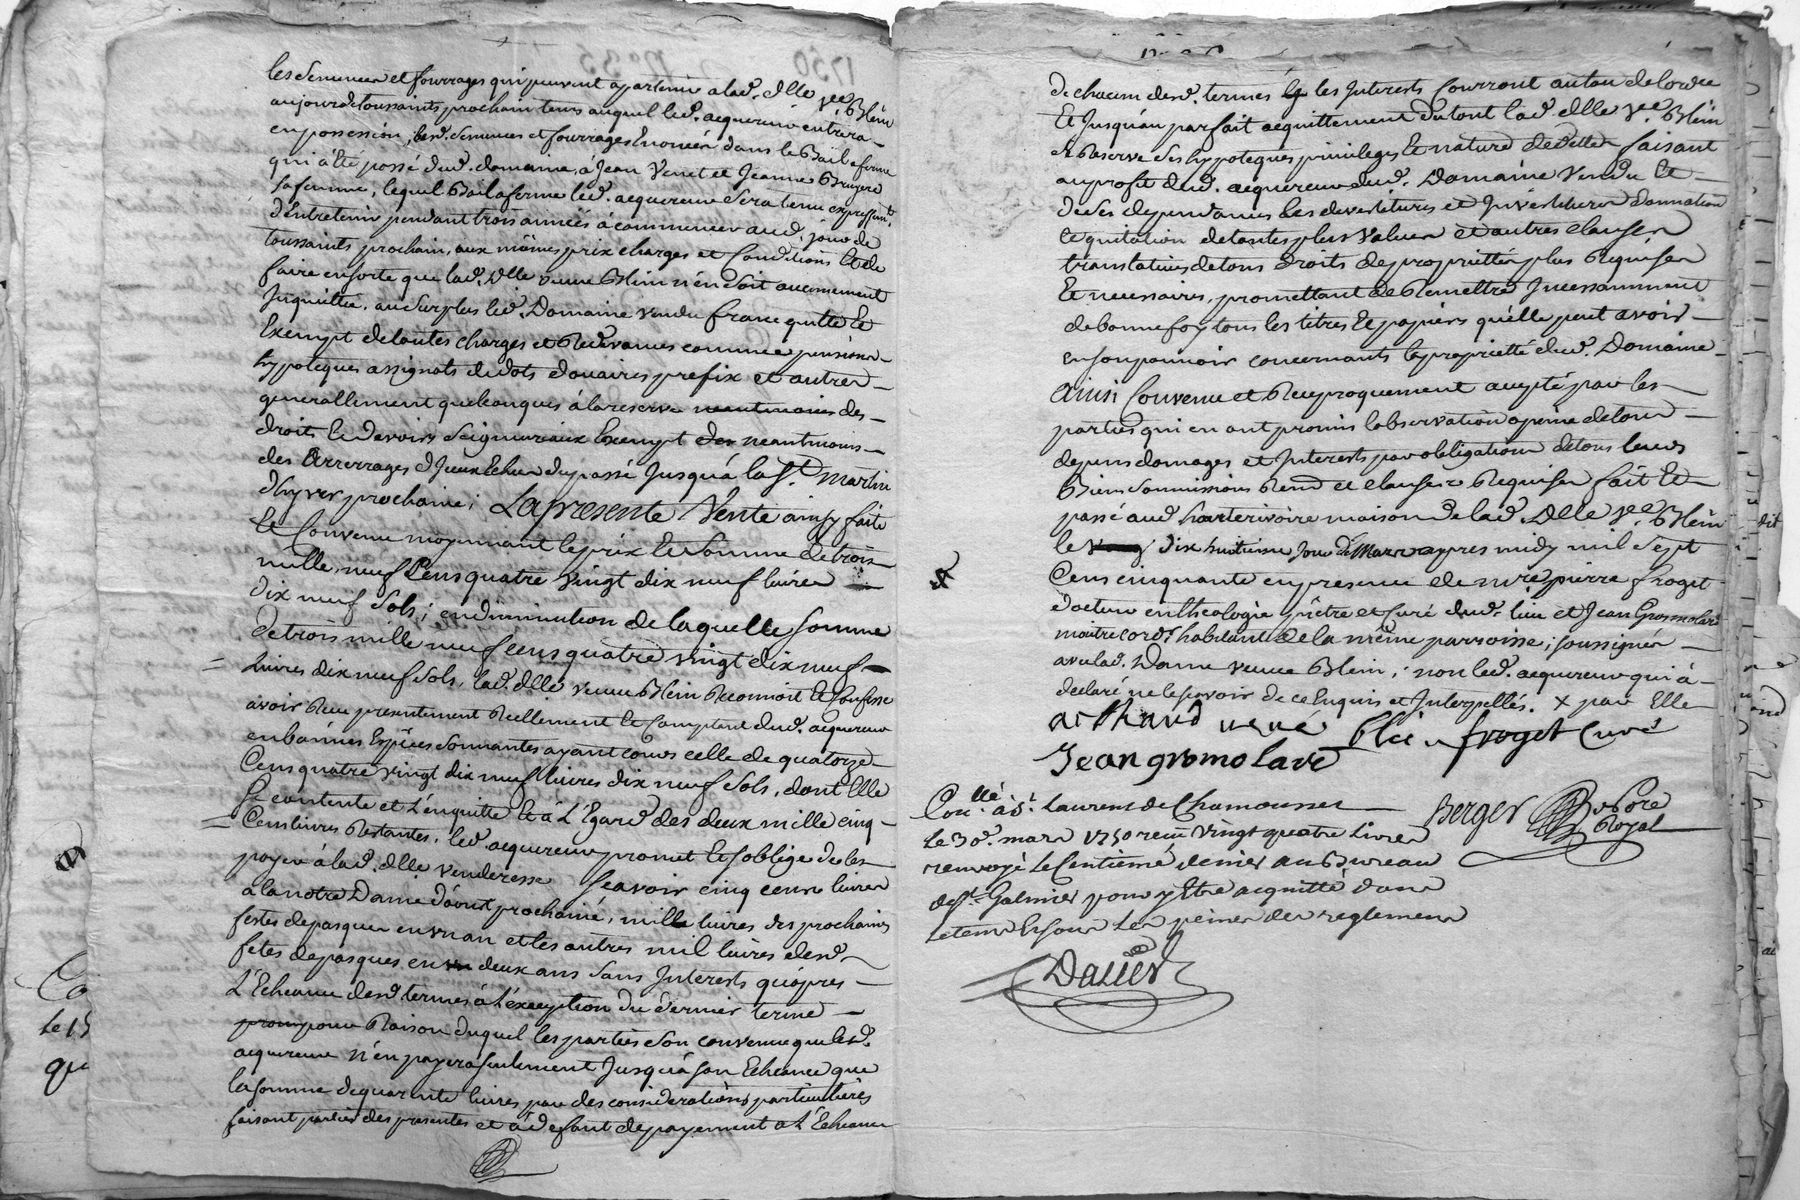 les semences et fourrages qui peuvent apartenir a lad. dlle vve. Blein
aujour de toussaints prochain tems auquel led. acquereur entrera
en possession, lesd. semences et fourrages Enoncés dans le Bail a ferme
qui a été passé dud. domaine, à Jean Venet et Jeanne Bruyere
sa femme, lequel Bail a ferme led. acquereur Sera tenu expressemt.
d'entretenir pendant trois années à commencer aud. jour de
toussaints prochain, aux mêmes prix charges et Conditions Et de
faire ensorte que lad. dlle veuve Blein n'en Soit aucunement
Inquiettée. au Surplus led. Domaine vendu franc quitte Et
Exempt de toutes charges et Redevances comme pensions
hypoteques assignats de dots douaires prefix et autres
generallement quelconques à la reserve neantmoins des
droits Et devoirs Seigneuriaux Exempt des neantmoins
des Arrerages d'Iceux Echus du passé Jusqu'à la St. martin
d'hyver prochaine; La presente Vente ainsy faite
Et Convenue moyennant le prix Et Somme de trois
mille, neuf Cens quatre vingt dix neuf livres
dix neuf Sols; en diminution de laquelle somme
de trois mille neuf cens quatre vingt dix neuf
livres dix neuf Sols, lad. dlle veuve Blein Reconnoit Et Confesse
avoir Receu presentement Reellement Et Comptant dud. acquereur
en bonnes Espèces Sonnantes ayant cours celle de quatorze
Cens quatre vingt dix neuf livres dix neuf Sols, dont Elle
Se contente et L'enquitte Et à L'Egard des deux mille cinq
Cens livres Restantes, led. acquereur promet Et S'oblige de les
payer à lad. dlle venderesse Sçavoir cinq cens livres
a la notre Dame d'aoust prochaine, mille livres des prochaines
festes de pasques en un an et les autres mil livres desd.
fetes de pasques en deux ans Sans Interests qu'apres
L'Echeance desd. termes à L'exception du dernier terme
pour Raison duquel les parties Son convenues que led.
acquereur n'en payera seulement Jusqu'à son Echeance que
la somme de quarante livres par des considerations particulieres
faisant parties des presentes et à deffaut de payement a L'Echeance
de chacun desd. termes les Interests Courront au taux de l'ordce
Et Jusqu'au parfait acquittement du tout lad. dlle Vve. Blein
se Reserve Ses hypoteques privileges Et nature de dettes faisant
au profit dud. acquereur dud. Domaine vendu Et
de Ses dependances les devestitures et Investitures donnation
et quitation de toutes plus values et autres clauses
translatives de tous droits de proprietté plus Requises
Et necessaires, promettant de Remettre Incessamment
de bonne foy tous les titres Et papiers qu'elle peut avoir
en son pouvoir concernants la proprietté dud. Domaine
Ainsi Convenu et Reciproquement accepté par les
parties qui en ont promis l'observation a peine de tous
depens domages et Interests par obligation de tous leurs
Biens Soumissions Renon et clauses Requises fait Et
passé aud. hauterivoire maison de lad. Dlle Vve. Blein
le dix huitieme Jour de Mars apres midy mil Sept
Cens cinquante en presence de mre pierre froget
docteur en theologie prêtre et Curé dud. lieu et Jean Gromolard
maitre cordr. habitant de la même parroisse; soussignés
avec lad. Dame veuve Blein; non led. acquereur qui a
declaré ne le sçavoir de ce Enquis et Interpellés. x par Elle
arthaud veuve Blein froget Curé
Jean gromolard
Conllé. à St. Laurent de Chamousset
le 30e. mars 1750 receu Vingt quatre Livres
renvoyé le Centiême denier au Bureau
de St. Galmier pour y Etre acquitté dans
le tems Et sous Les peines des reglemens
Berger
Royal
Dallier